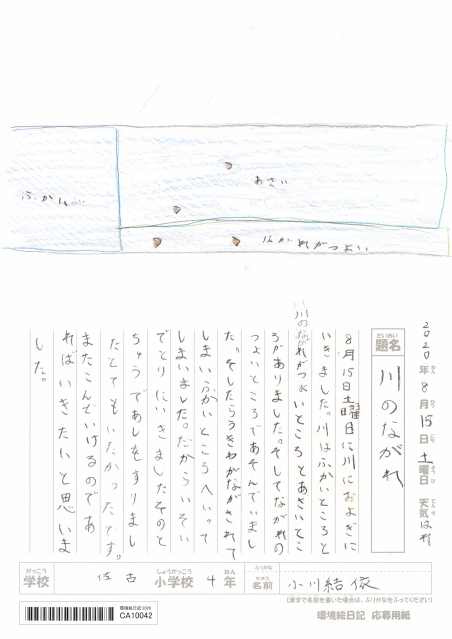 ふかい
あさい
ながれがつよい
2020年8月15日土曜日 天気はれ
だいめい
題名
川のながれ
8月15日土曜日に川におよぎに
いきました。川はふかいところと
川のながれがつよいところとあさいとこ
ろがありました。そしてながれの
つよいところであそんでいまし
た。そしたらうきわがながされて
しまいふかいところへいって
しまいました。だからいそい
でとりにいきましたそのと
ちゅうであしをすりまし
たとてもいたかったです。
またこんどいけるのであ
ればいきたいと思いま
した。
がっこう
学校
佐古
しょうがっこう
小学校
4
ねん
年
ふりがな
なまえ
名前
小川結依
(漢字で名前を書いた場合は、ふりがなをふってください)
環境絵日記2020
CA10042
環境絵日記 応募用紙